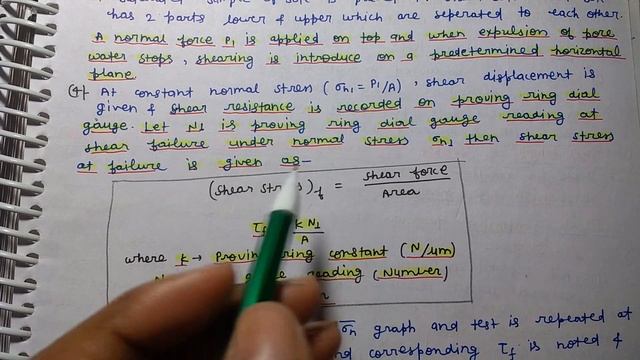 has 2 parts lower & upper which are seperated to each other.
A normal force P1 is applied on top and when expulsion of pore
water stops, shearing is introduce on a predetermined horizontal
plane.
(4) At constant normal stress (σn1 = P1/A), shear displacement is
given & shear resistance is recorded on proving ring dial
gauge. Let N1 is proving ring dial gauge reading at
shear failure under normal stress σn1 then shear stress
at failure is given as–
(shear stress)f = shear force / Area
τf kN1 / A
where k → Proving ring constant (N/μm)
reading (Number)
σn graph and test is repeated at
corresponding τf is noted &